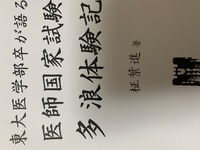 東大医学部卒が語る
医師国家試験
多浪体験記
柾葉進 著